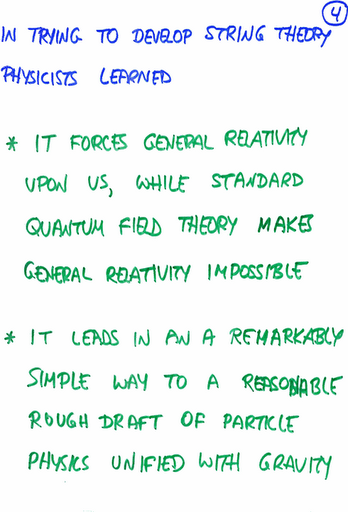 4
IN TRYING TO DEVELOP STRING THEORY
PHYSICISTS LEARNED
* IT FORCES GENERAL RELATIVITY
UPON US, WHILE STANDARD
QUANTUM FIELD THEORY MAKES
GENERAL RELATIVITY IMPOSSIBLE
* IT LEADS IN AN A REMARKABLY
SIMPLE WAY TO A REASONABLE
ROUGH DRAFT OF PARTICLE
PHYSICS UNIFIED WITH GRAVITY